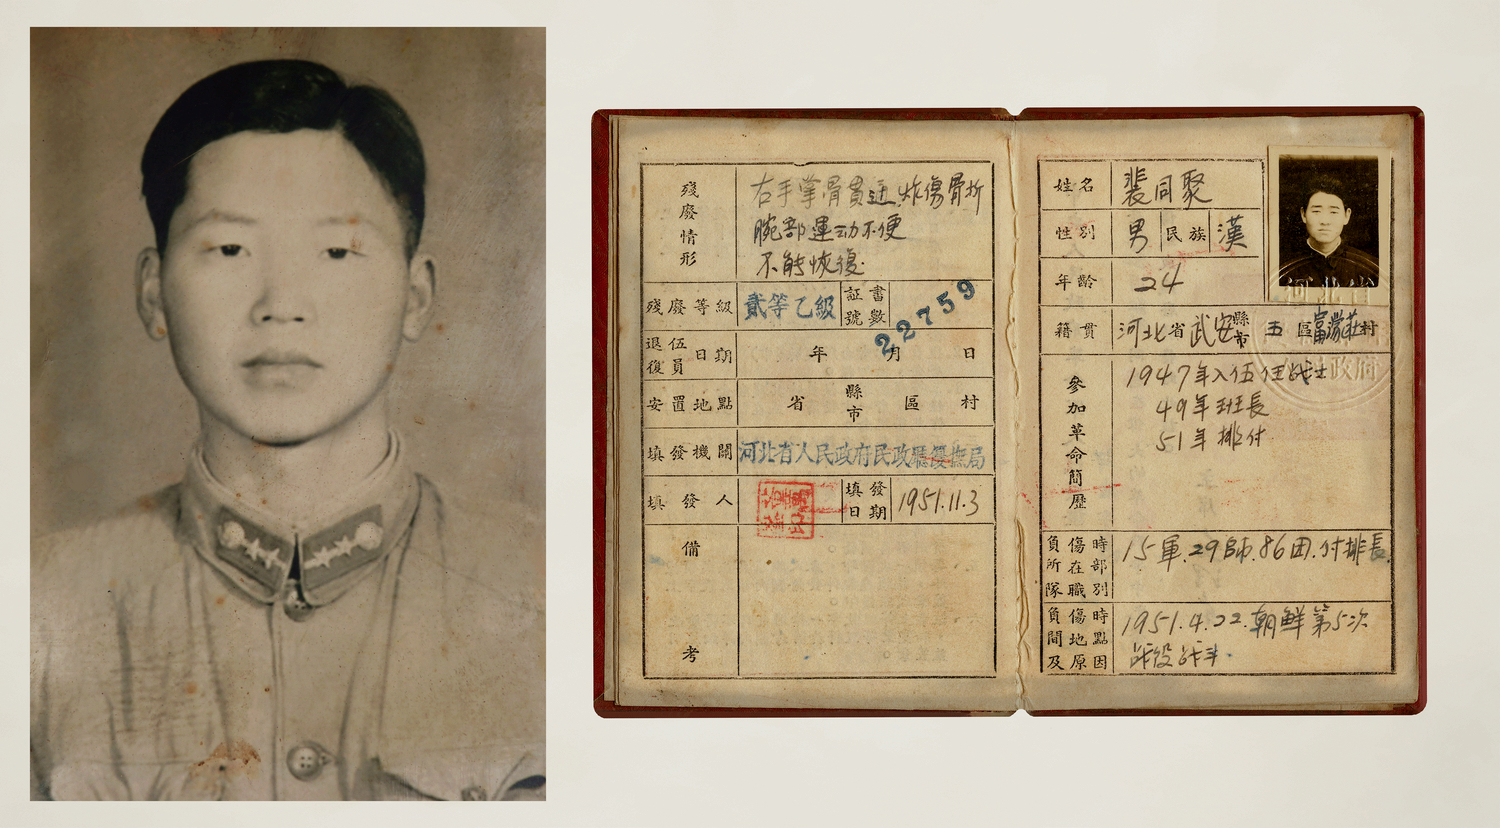 殘廢情形 右手掌骨貫通炸傷骨折
腕部運动不便
不能恢復
殘廢等級 貳等乙級 証書號數 22759
退伍復員日期 年 月 日
安置地點 省 縣市 區 村
填發機關 河北省人民政府民政廳優撫局
填發人 填發日期 1951.11.3
備考
姓名 裴同聚
性別 男 民族 漢
年齡 24
籍貫 河北省武安縣市 五 區 村
參加革命簡歷 1947年入伍任战士
49年班長
51年排付
負傷時所在部隊職別 15軍.29師.86団.付排長
負傷時間地點及原因 1951.4.22.朝鮮第5次
战役战斗.
河北省
政府